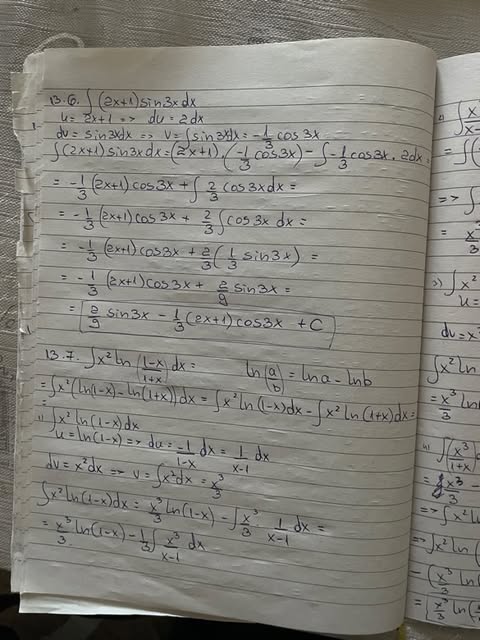 13.6. ∫(2x+1)sin3x dx
u = 2x+1 => du = 2dx
dv = sin3xdx => v = ∫sin3xdx = -1/3 cos3x
∫(2x+1)sin3xdx = (2x+1)·(-1/3 cos3x) - ∫-1/3 cos3x·2dx =
= -1/3 (2x+1)cos3x + ∫ 2/3 cos3xdx =
= -1/3 (2x+1)cos3x + 2/3 ∫cos3x dx =
= -1/3 (2x+1)cos3x + 2/3 (1/3 sin3x) =
= -1/3 (2x+1)cos3x + 2/9 sin3x =
= 2/9 sin3x - 1/3 (2x+1)cos3x + C
13.7. ∫x² ln(1-x/1+x)dx = ln(a/b) = lna - lnb
= ∫x²(ln(1-x) - ln(1+x))dx = ∫x² ln(1-x)dx - ∫x² ln(1+x)dx =
1) ∫x² ln(1-x)dx
u = ln(1-x) => du = -1/1-x dx = 1/x-1 dx
dv = x²dx => v = ∫x²dx = x³/3
∫x² ln(1-x)dx = x³/3 ln(1-x) - ∫ x³/3 · 1/x-1 dx =
= x³/3 ln(1-x) - 1/3 ∫ x³/x-1 dx
∫ x²
u =
dv = x²
∫x² ln
= x³/3 ln
∫(x³/1+x)
=> ∫x² ln
=> ∫x² ln(
- (x³/3 ln(
= x³/3 ln(